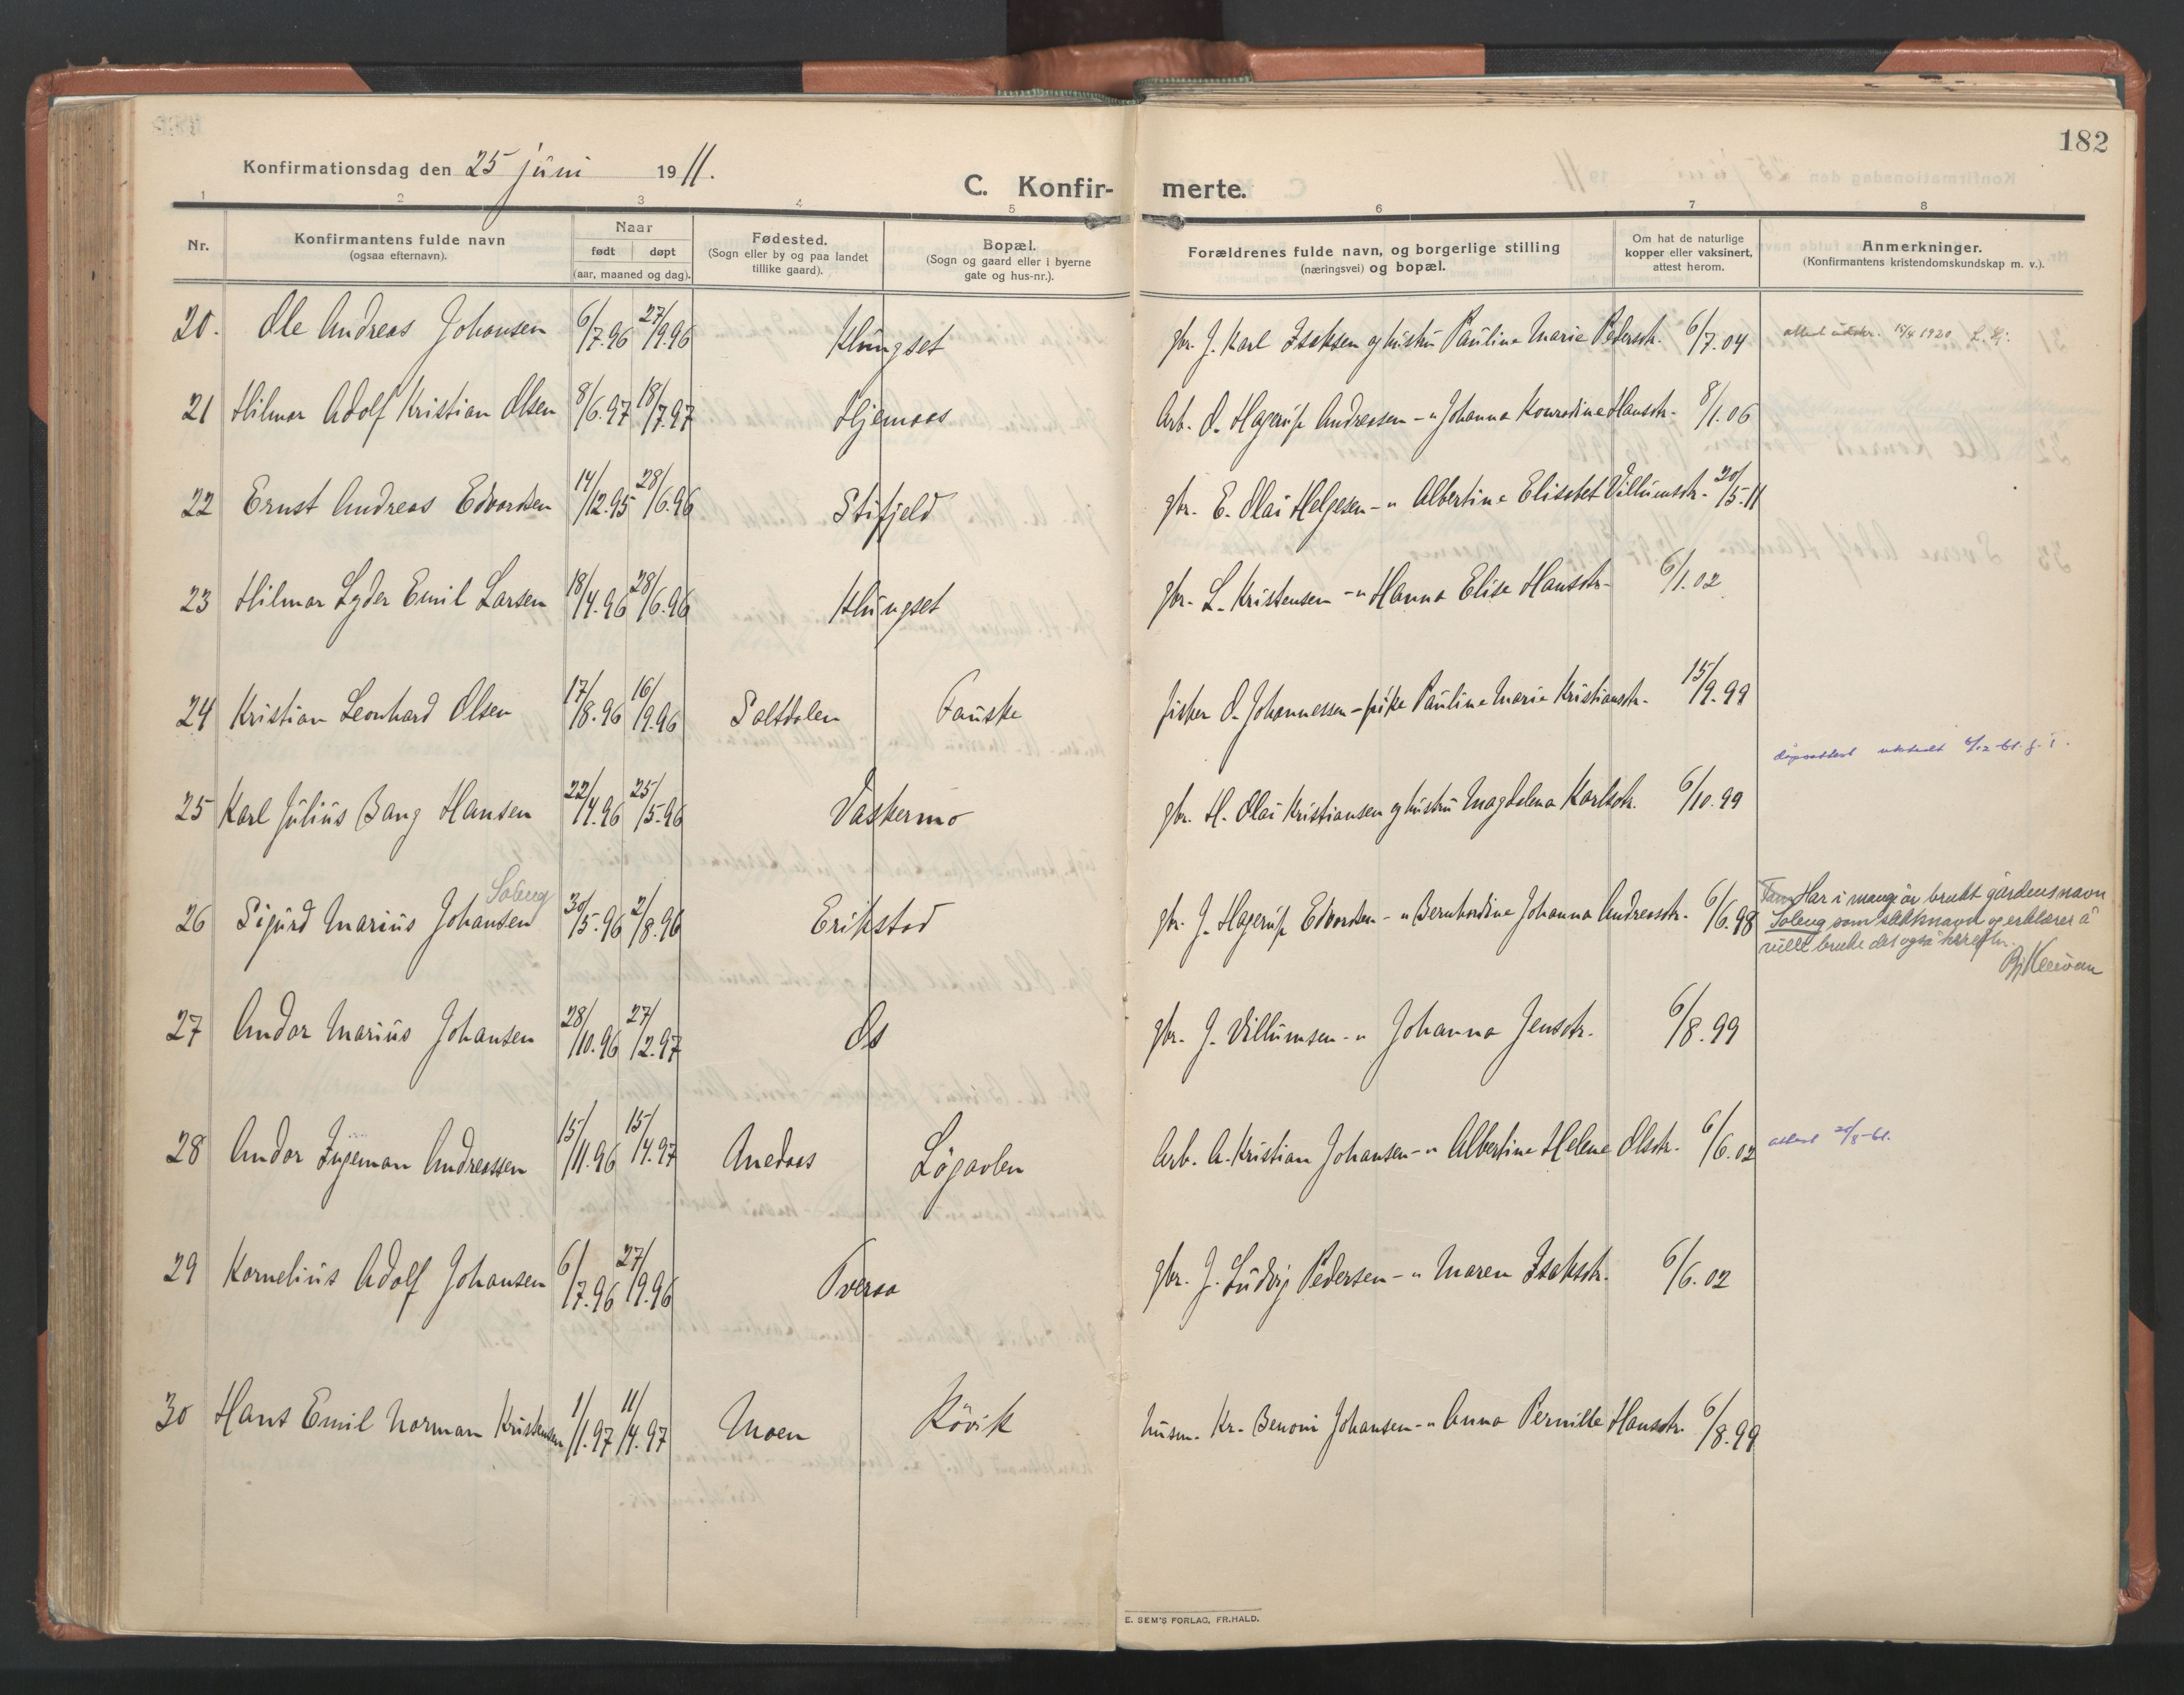 182
Konfirmationsdag den 25 juni 1911.
C. Konfir- merte.
1 2 3 4 5 6 7 8
Nr.
Konfirmantens fulde navn
(ogsaa efternavn).
Naar
født døpt
(aar, maaned og dag).
Fødested.
(Sogn eller by og paa landet
tillike gaard).
Bopæl.
(Sogn og gaard eller i byerne
gate og hus-nr.).
Forældrenes fulde navn, og borgerlige stilling
(næringsvei) og bopæl.
Om hat de naturlige
kopper eller vaksinert,
attest herom.
Anmerkninger.
(Konfirmantens kristendomskundskap m. v.).
20. Ole Andreas Johansen 6/7.96 27/9.96 Klungset gbr. J. Karl Isaksen og hustru Pauline Marie Pedersdtr. 6/7.04 attest utskr. 15/4 1920
21 Hilmar Adolf Kristian Olsen 8/6.97 18/7.97 Hjemaas Arb. O. Hagerup Andreasen - " Johanna Konradine Hansdtr. 8/1.06
22 Ernst Andreas Edvardsen 14/12.95 28/6.96 Stifjeld gbr. E. Olai Helgesen - " Albertine Elisabet Villumsdtr. 20/5.11
23 Hilmar Lyder Emil Larsen 18/4.96 28/6.96 Klungset gbr. L. Kristensen - " Hanna Elise Hansdtr. 6/1.02
24 Kristian Leonhard Olsen 17/8.96 16/9.96 Saltdalen Fauske fisker O. Johannessen - pike Pauline Marie Kristiansdtr. 15/9.99
dåpsattest utstedt 6/12-61.
25 Karl Julius Bang Hansen 22/4.96 25/5.96 Vaskermo gbr. H. Olai Kristiansen og hustru Magdalena Karlsdtr. 6/10.99
Soleng
26 Sigurd Marius Johansen 30/5.96 2/8.96 Erikstad gbr. J. Hagerup Edvardsen - " Bernhardine Johanna Andreasdtr. 6/6.98 Har i mange år brukt gårdens navn
Soleng som slektsnavn og erklærer å
ville bruke det også herefter.
27 Andor Marius Johansen 28/10.96 27/2.97 Os gbr. J. Villumsen - " Johanna Jensdtr. 6/8.99
28 Andor Ingeman Andreassen 15/11.96 15/4.97 Anedaas Løgavlen Arb. A. Kristian Johansen - " Albertine Helene Olsdtr. 6/6.02 attest 20/8-61.
29 Kornelius Adolf Johansen 6/7.96 27/9.96 Tveraa gbr. J. Ludvig Pedersen - " Maren Isaksdtr. 6/6.02
30 Hans Emil Norman Kristensen 1/1.97 11/4.97 Moen Røvik husm. Kr. Benoni Johansen - " Anna Pernille Hansdtr. 6/8.99
E. SEM'S FORLAG, FR.HALD.